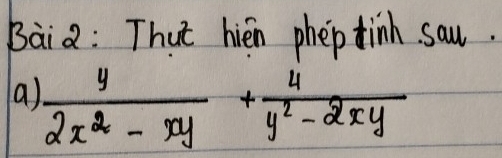 Bài 2: Thưc hiện phép tính sau.
a) \frac{y}{2x^2 - xy} + \frac{4}{y^2 - 2xy}